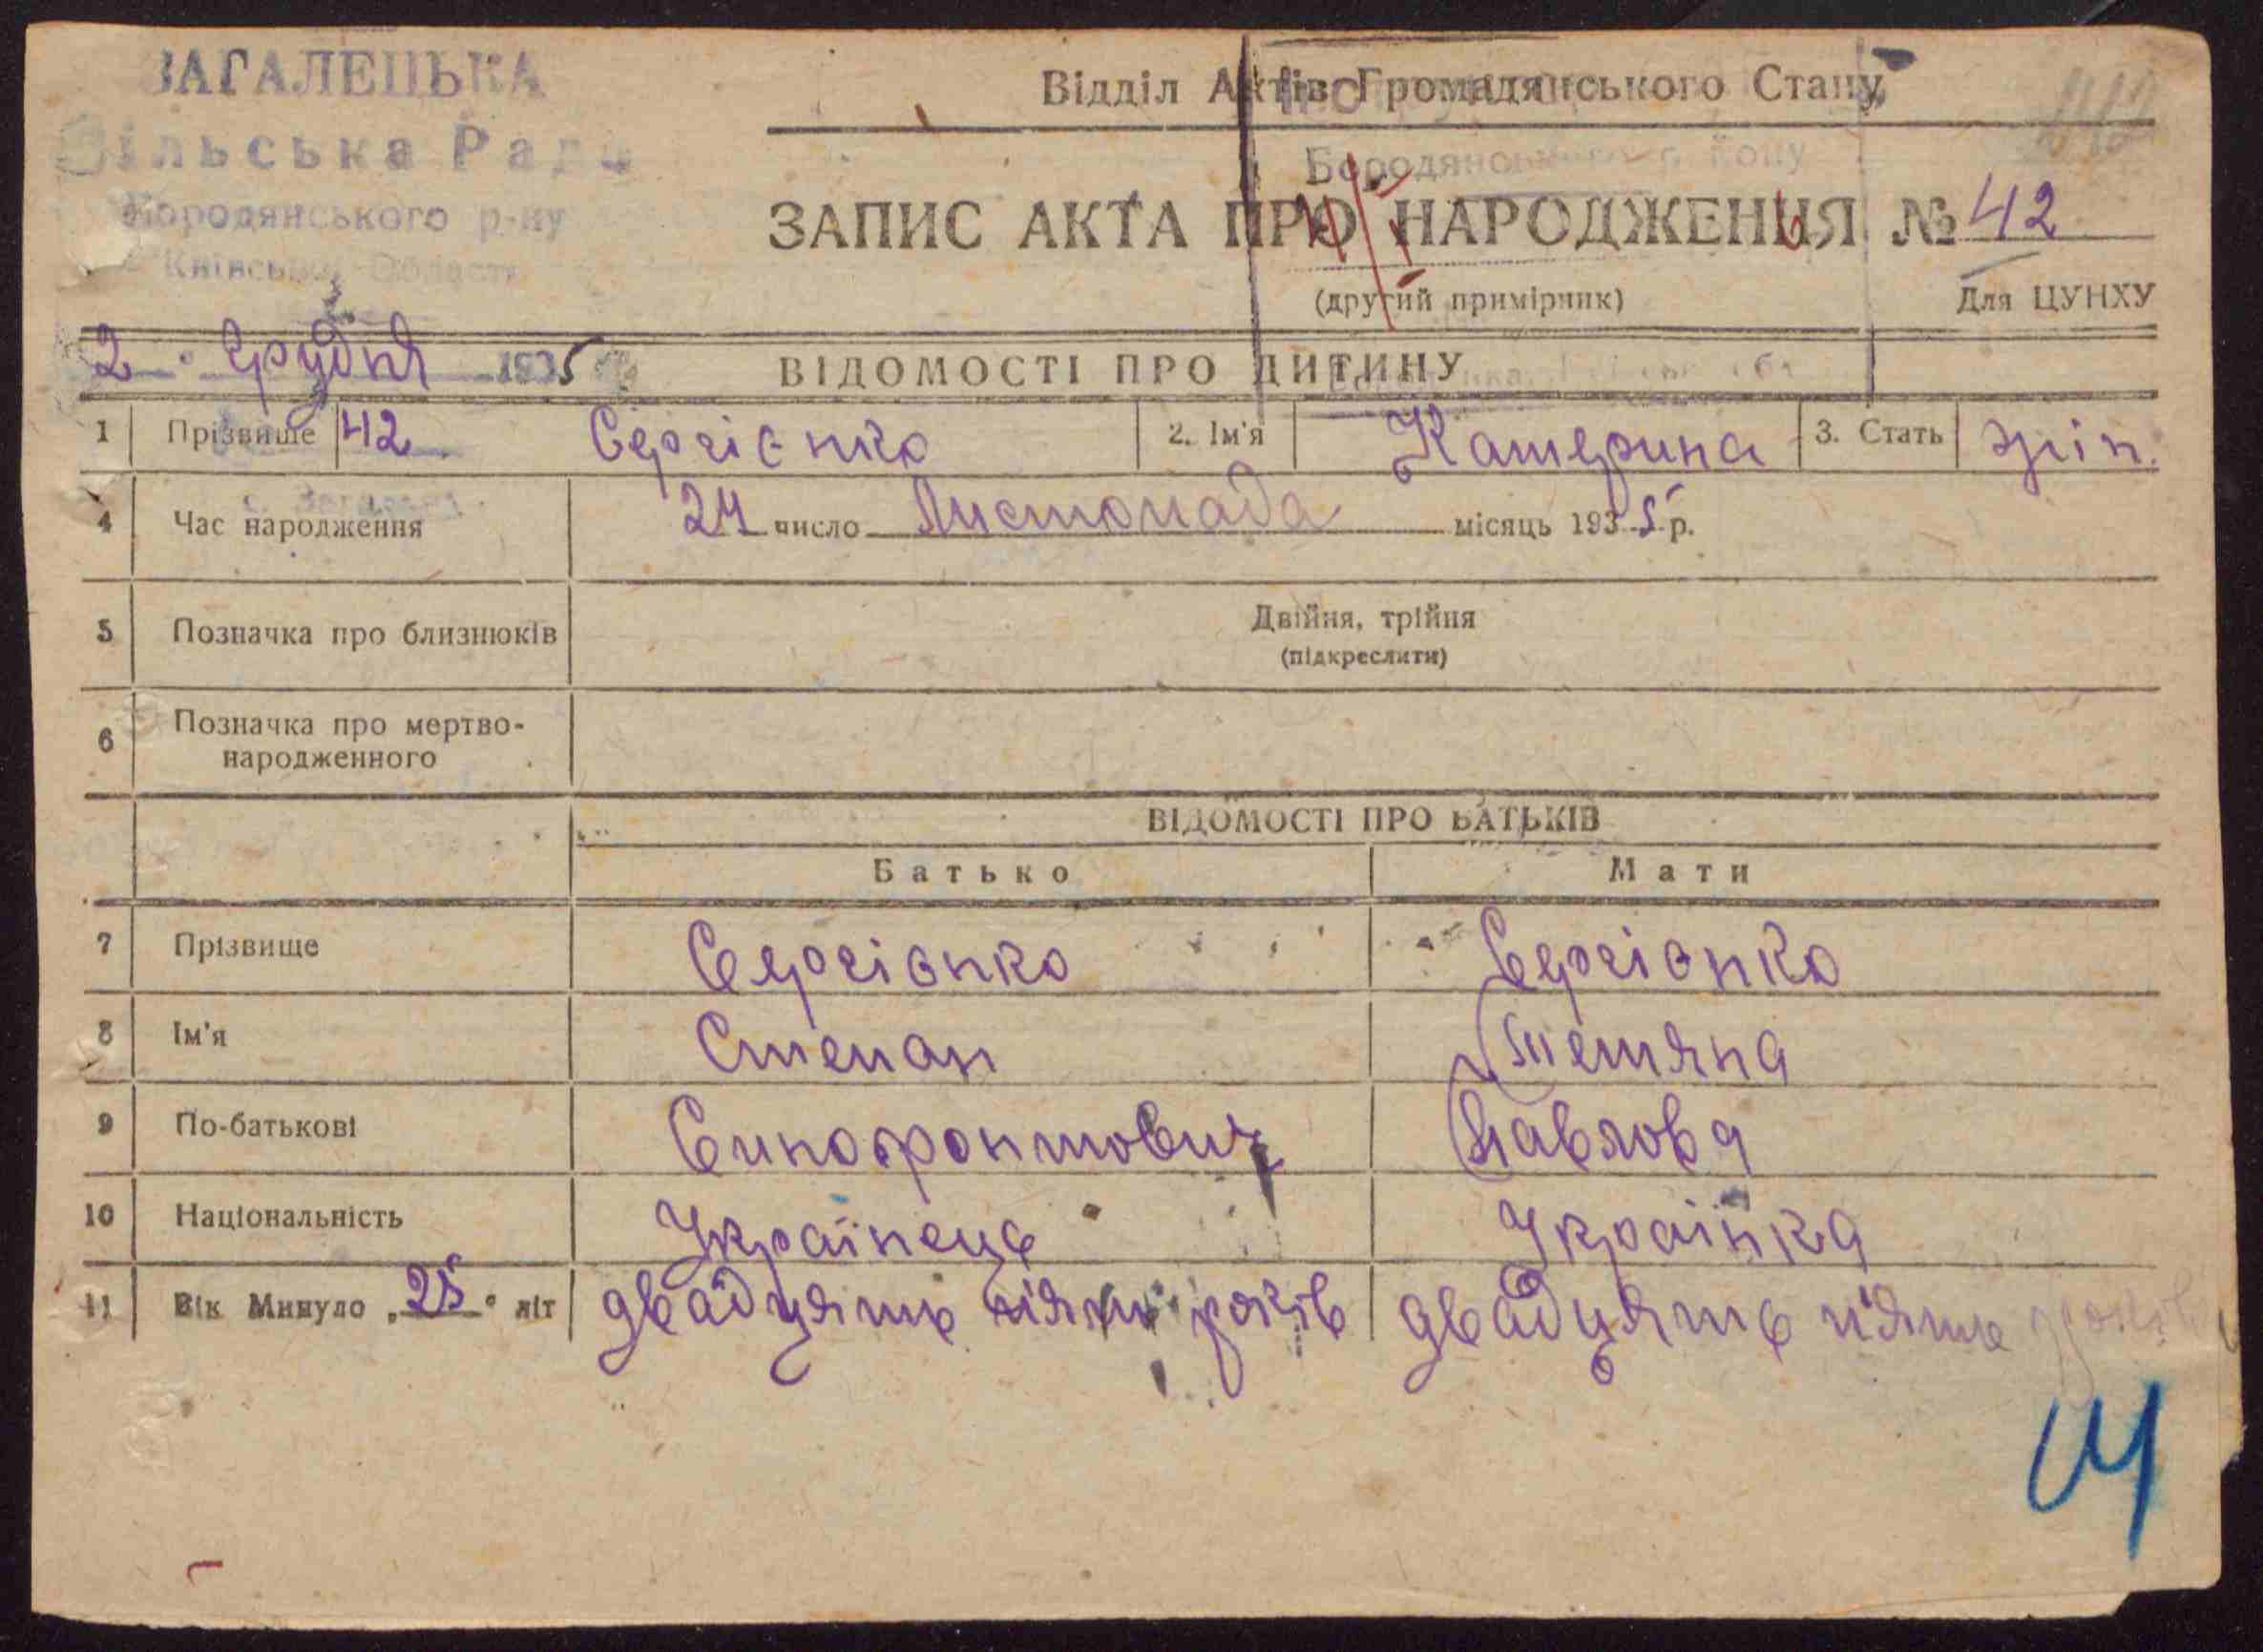 ЗАГАЛЕЦЬКА
Сільська Рада
Бородянського р-ну
Київської Області
2 Грудня 1935
42
с. Загальці
Відділ Актів Громадянського Стану
Бородянського р. Київ
ЗАПИС АКТА ПРО НАРОДЖЕННЯ № 42
(другий примірник)
Для ЦУНХУ
ВІДОМОСТІ ПРО ДИТИНУ
1 Прізвище Сергієнко 2. Ім'я Катерина 3. Стать жін.
4 Час народження 24 число Листопада місяць 1935 р.
5 Позначка про близнюків Двійня, трійня
(підкреслити)
6 Позначка про мертво-
народженного
ВІДОМОСТІ ПРО БАТЬКІВ
Батько Мати
7 Прізвище Сергієнко Сергієнко
8 Ім'я Степан Тетяна
9 По-батькові Синофонтович Павлова
10 Національність Українець Українка
11 Вік Минуло „25" літ двадцять пять років двадцять п'ять років